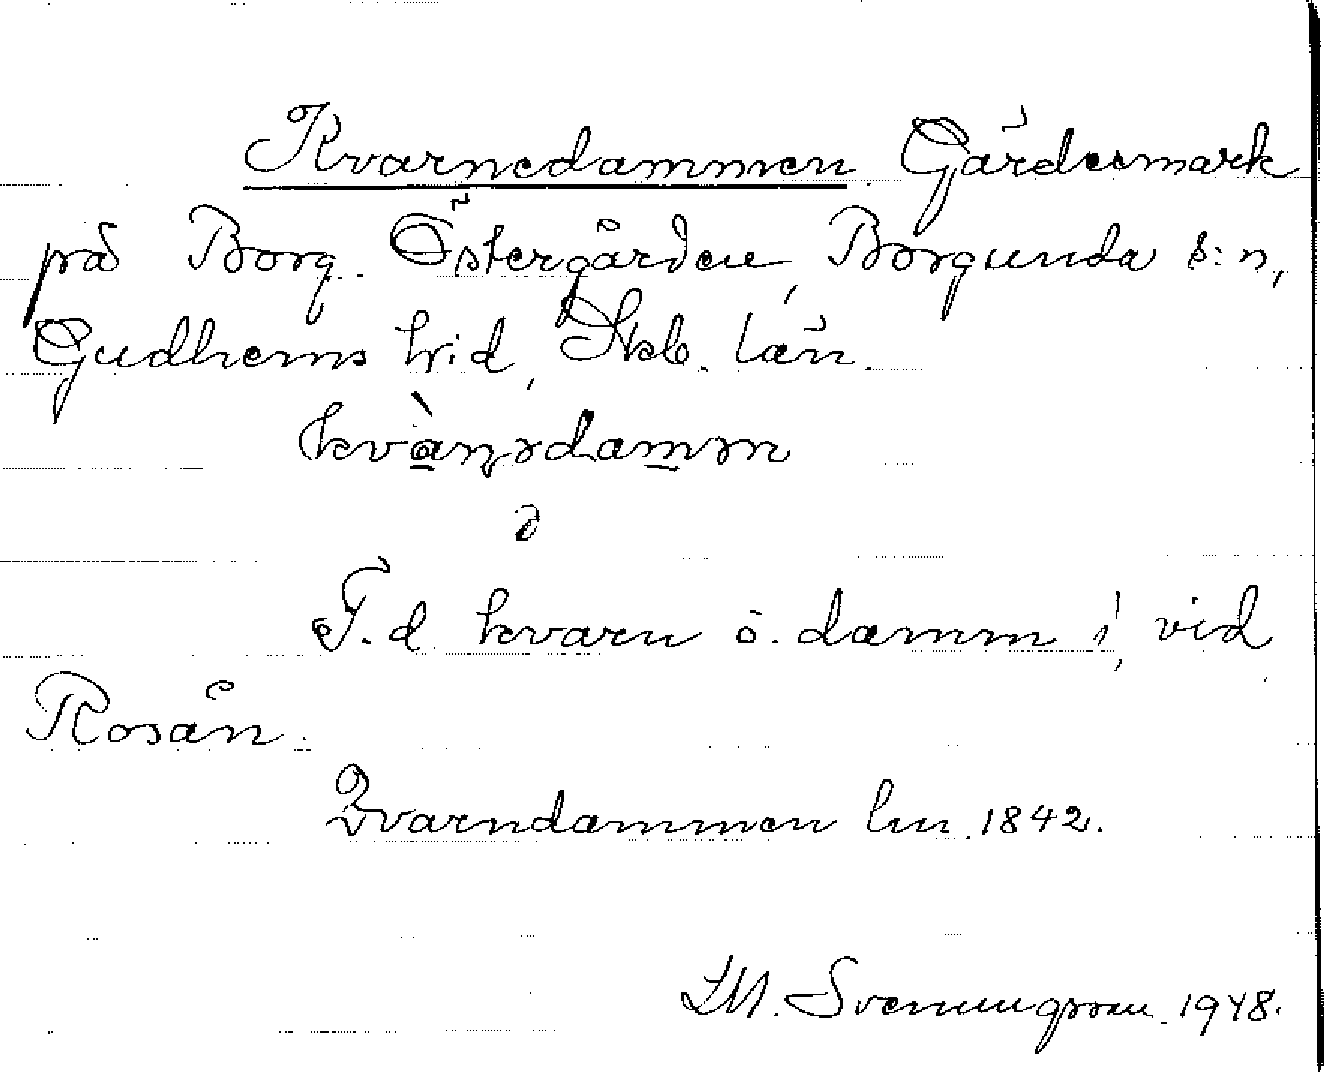 Kvarnedammen Gärdesmark
på Borg. Östergården, Borgunda s:n,
Gudhems h:d, Skb. län.
kvàṉədam̱ən
ə
F.d kvarn o. damm i, vid
Rosån.
Qvarndammen lm 1842.
Svenungsson 1948.